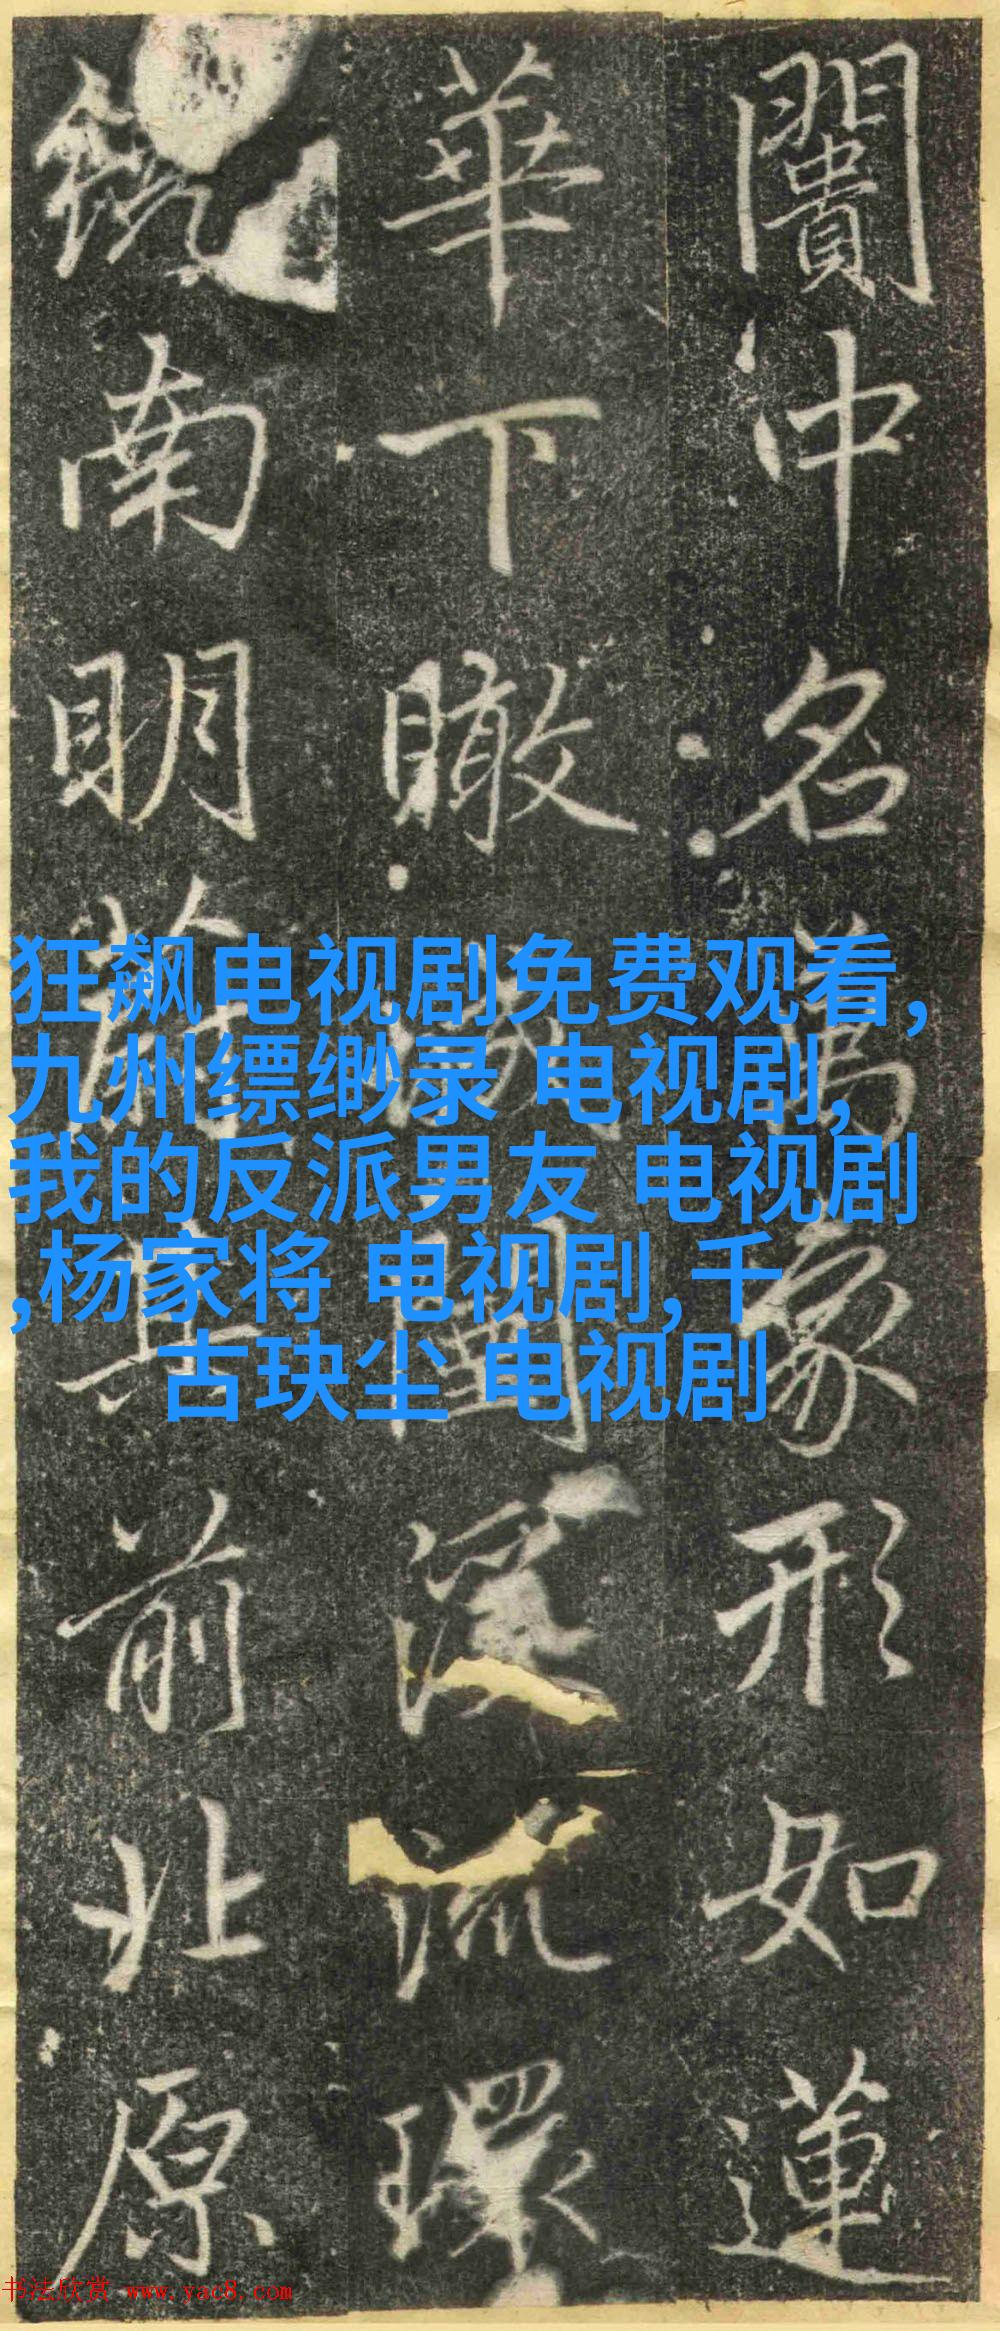 闠中名萬象形如蓮
華下瞰
南明
前北原
環
狂飙电视剧免费观看,
九州缥缈录 电视剧,
我的反派男友 电视剧
,杨家将 电视剧,千
古玦尘 电视剧
书法欣赏 www.yac8.com